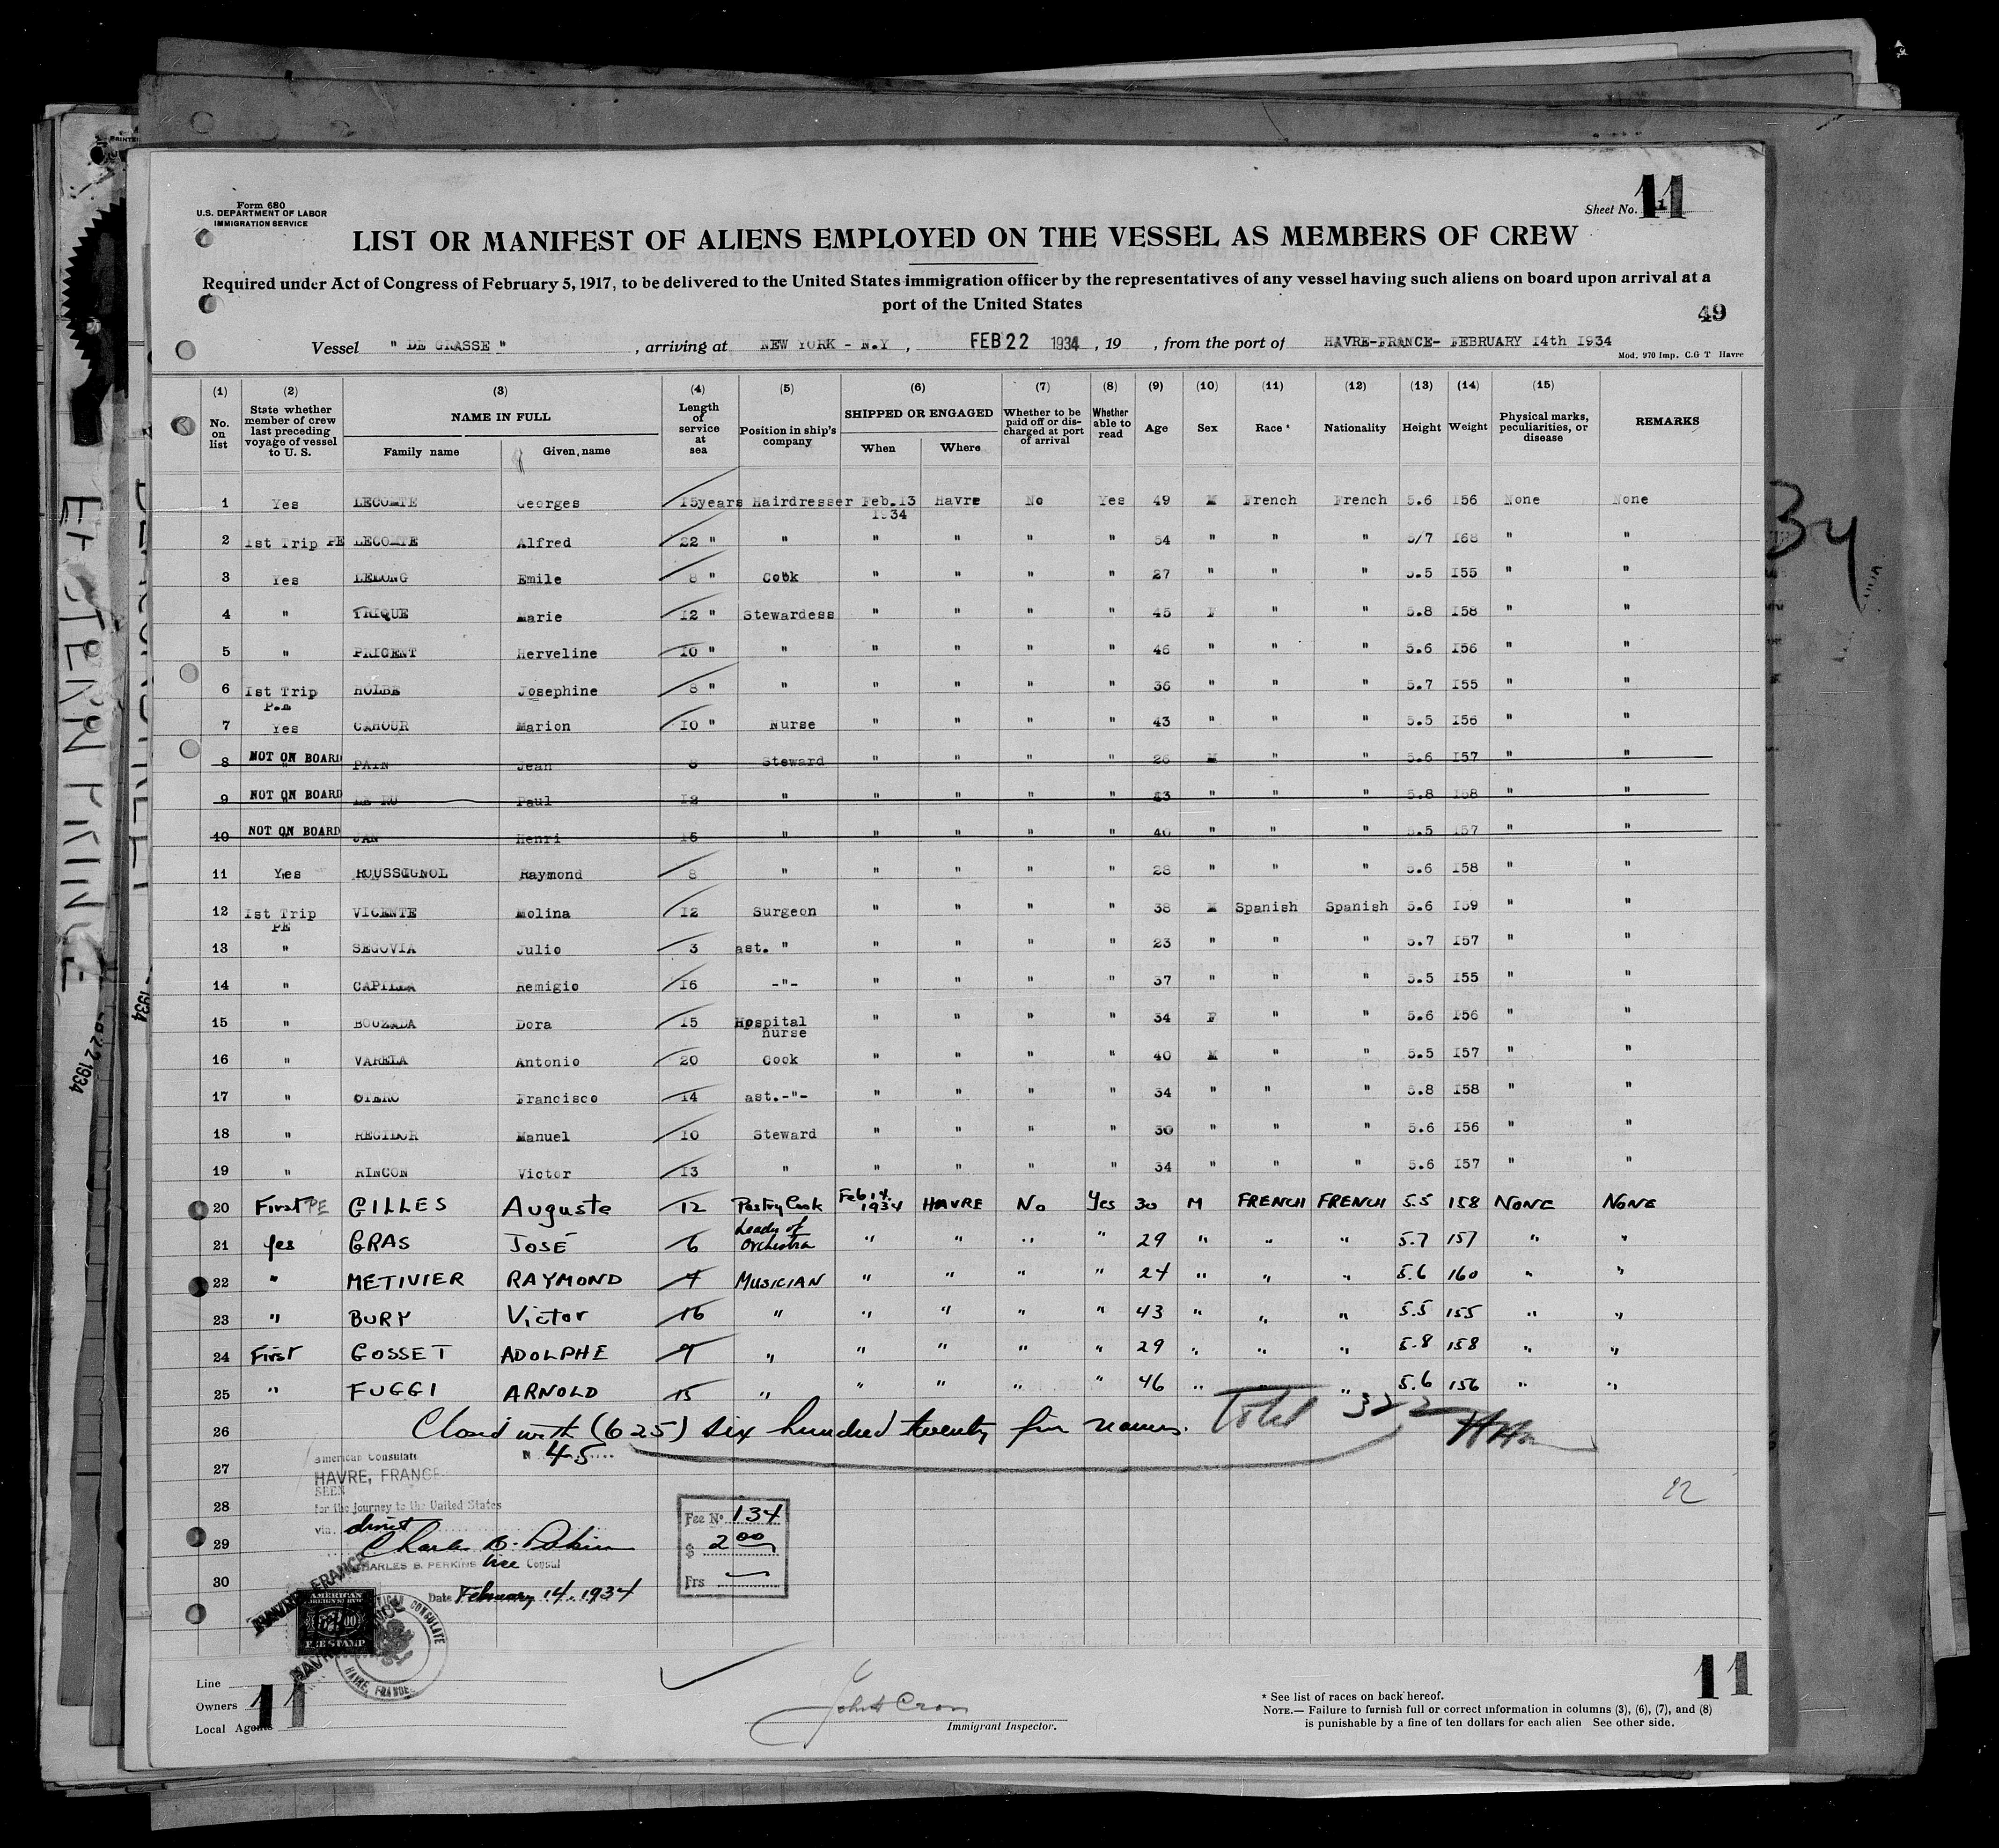 Form 680
U.S. DEPARTMENT OF LABOR
IMMIGRATION SERVICE
Sheet No. 11
LIST OR MANIFEST OF ALIENS EMPLOYED ON THE VESSEL AS MEMBERS OF CREW
Required under Act of Congress of February 5, 1917, to be delivered to the United States immigration officer by the representatives of any vessel having such aliens on board upon arrival at a
port of the United States
49
Vessel " DE GRASSE " , arriving at NEW YORK - N.Y , FEB 22 1934 , 19 , from the port of HAVRE-FRANCE- FEBRUARY 14th 1934
Mod. 970 Imp. C.G T Havre
(1) (2) (3) (4) (5) (6) (7) (8) (9) (10) (11) (12) (13) (14) (15)
No. on list State whether member of crew last preceding voyage of vessel to U. S. NAME IN FULL Family name Given name Length of service at sea Position in ship's company SHIPPED OR ENGAGED When Where Whether to be paid off or discharged at port of arrival Whether able to read Age Sex Race * Nationality Height Weight Physical marks, peculiarities, or disease REMARKS
1 Yes LECOMTE Georges 15years Hairdresser Feb.13 1934 Havre No Yes 49 M French French 5.6 156 None None
2 1st Trip PE LECOMTE Alfred 22 " " " " " " 54 " " " 5/7 168 " "
3 Yes LELONG Emile 8 " Cook " " " " 27 " " " 5.5 155 " "
4 " TRIQUE Marie 12 " Stewardess " " " " 45 F " " 5.8 158 " "
5 " PRIGENT Herveline 10 " " " " " " 46 " " " 5.6 156 " "
6 1st Trip P.E HOLBE Josephine 8 " " " " " " 36 " " " 5.7 155 " "
7 Yes CAHOUR Marion 10 " Nurse " " " " 43 " " " 5.5 156 " "
8 NOT ON BOARD " PAIN Jean 8 Steward " " " " 26 M " " 5.6 157 " "
9 NOT ON BOARD " LE RU Paul 12 " " " " " 43 " " " 5.8 158 " "
10 NOT ON BOARD " JAN Henri 16 " " " " " 40 " " " 5.5 157 " "
11 Yes ROUSSIGNOL Raymond 8 " " " " " 28 " " " 5.6 158 " "
12 1st Trip PE VICENTE Molina 12 Surgeon " " " " 38 M Spanish Spanish 5.6 159 " "
13 " SEGOVIA Julio 3 ast. " " " " " 23 " " " 5.7 157 " "
14 " CAPILLA Remigio 16 -"- " " " " 37 " " " 5.5 155 " "
15 " BOUZADA Dora 15 Hospital nurse " " " " 34 F " " 5.6 156 " "
16 " VARELA Antonio 20 Cook " " " " 40 M " " 5.5 157 " "
17 " OTERO Francisco 14 ast.-"- " " " " 34 " " " 5.8 158 " "
18 " REGIDOR Manuel 10 Steward " " " " 30 " " " 5.6 156 " "
19 " RINCON Victor 13 " " " " " 34 " " " 5.6 157 " "
20 First PE GILLES Auguste 12 Pastry Cook Feb 14. 1934 HAVRE No Yes 30 M FRENCH FRENCH 5.5 158 NONE NONE
21 yes GRAS JOSÉ 6 Leader of Orchestra " " " " 29 " " " 5.7 157 " "
22 " METIVIER RAYMOND 4 MUSICIAN " " " " 24 " " " 5.6 160 " "
23 " BURY Victor 16 " " " " " 43 " " " 5.5 155 " "
24 First GOSSET ADOLPHE 9 " " " " " 29 " " " 5.8 158 " "
25 " FUGGI ARNOLD 15 " " " " " 46 " " " 5.6 156 " "
26 Closed with (625) six hundred twenty five names. Total 322
27
American Consulate
No 45
HAVRE, FRANCE
SEEN
28
for the journey to the United States
via. direct
29
CHARLES B. PERKINS Vice Consul
30
Date February 14. 1934
Fee No. 134
$ 2 00
Frs
HAVRE, FRANCE
AMERICAN
FOREIGN SERVICE
FEE STAMP
AMERICAN CONSULATE
HAVRE, FRANCE
Line
Owners
Local Agents
11
Immigrant Inspector.
* See list of races on back hereof.
NOTE.— Failure to furnish full or correct information in columns (3), (6), (7), and (8)
is punishable by a fine of ten dollars for each alien See other side.
11
EASTERN PRINCE
34